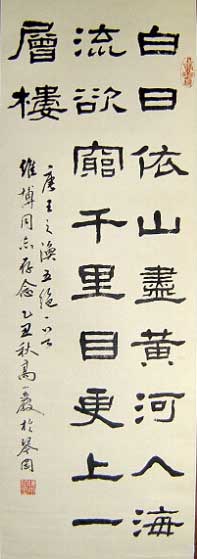 白日依山盡黄河入海
流欲窮千里目更上一
層樓
唐王之渙五绝一首
維博同志存念乙丑秋高嚴於琴岡